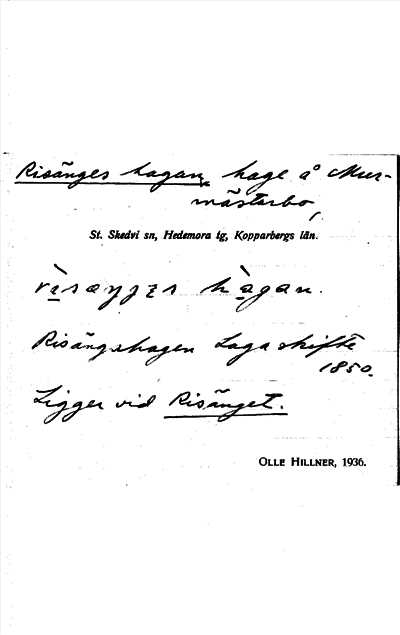 Risänges hagan, hage å Mur-
mästarbo,
St. Skedvi sn, Hedemora tg, Kopparbergs län.
hàgan.
Risängshagen Laga skifte
1850.
Ligger vid Risänget.
OLLE HILLNER, 1936.